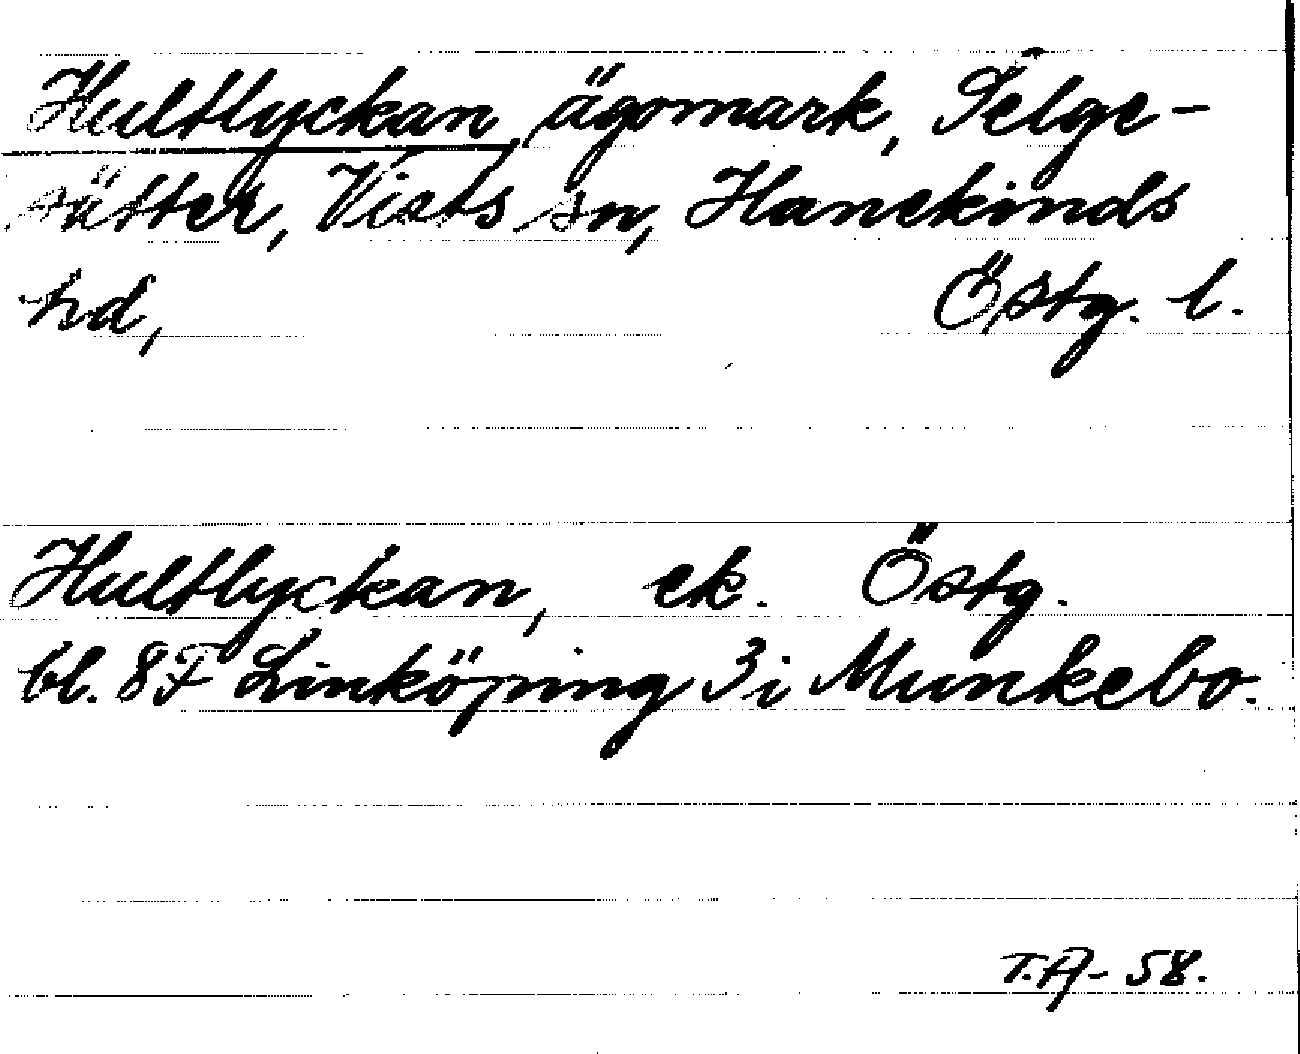 Hultlyckan, ägomark, Selge-
sätter, Vists sn, Hanekinds
hd, Östg. l.
Hultlyckan, ek. Östg.
bl. 8F Linköping 3i Munkebo.
T.A- 58.